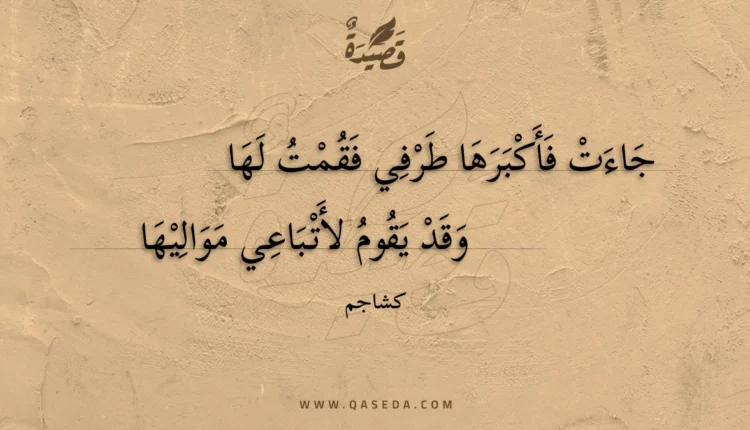 قَصِيْدَةٌ
جَاءَتْ فَأَكْبَرَهَا طَرْفِي فَقُمْتُ لَهَا
وَقَدْ يَقُومُ لأَتْبَاعِي مَوَالِيْهَا
كشاجم
WWW.QASEDA.COM